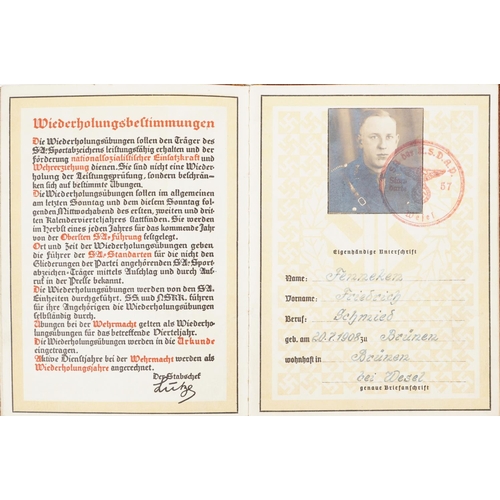 Wiederholungsbestimmungen
Die Wiederholungsübungen sollen den Träger des
SA-Sportabzeichens leistungsfähig erhalten und der
Förderung nationalsozialistischer Einsatzkraft und
Wehrerziehung dienen. Sie sind nicht eine Wieder-
holung der Leistungsprüfung, sondern beschrän-
ken sich auf bestimmte Übungen.
Die Wiederholungsübungen sollen im allgemeinen
am letzten Sonntag und dem diesem Sonntag fol-
genden Mittwochabend des ersten, zweiten und drit-
ten Kalendervierteljahres stattfinden. Sie werden
im Herbst eines jeden Jahres für das kommende Jahr
von der Obersten SA-Führung festgelegt.
Ort und Zeit der Wiederholungsübungen geben
die Führer der SA-Standarten für die nicht den
Gliederungen der Partei angehörenden SA-Sport-
abzeichen-Träger mittels Anschlag und durch Auf-
ruf in der Presse bekannt.
Die Wiederholungsübungen werden von den SA-
Einheiten durchgeführt. SS und NSKK. führen
für ihre Angehörigen die Wiederholungsübungen
selbständig durch.
Übungen bei der Wehrmacht gelten als Wiederho-
lungsübungen für das betreffende Vierteljahr.
Die Wiederholungsübungen werden in die Urkunde
eingetragen.
Aktive Dienstjahre bei der Wehrmacht werden als
Wiederholungsjahre angerechnet.
Der Stabschef
Lutze
der N.S.D.A.P.
57
Wesel
Eigenhändige Unterschrift
Name: Fenneken
Vorname: Friedrich
Beruf: Schmied
geb. am 20.7.1908 zu Brünen
wohnhaft in Brünen
bei Wesel
genaue Briefanschrift